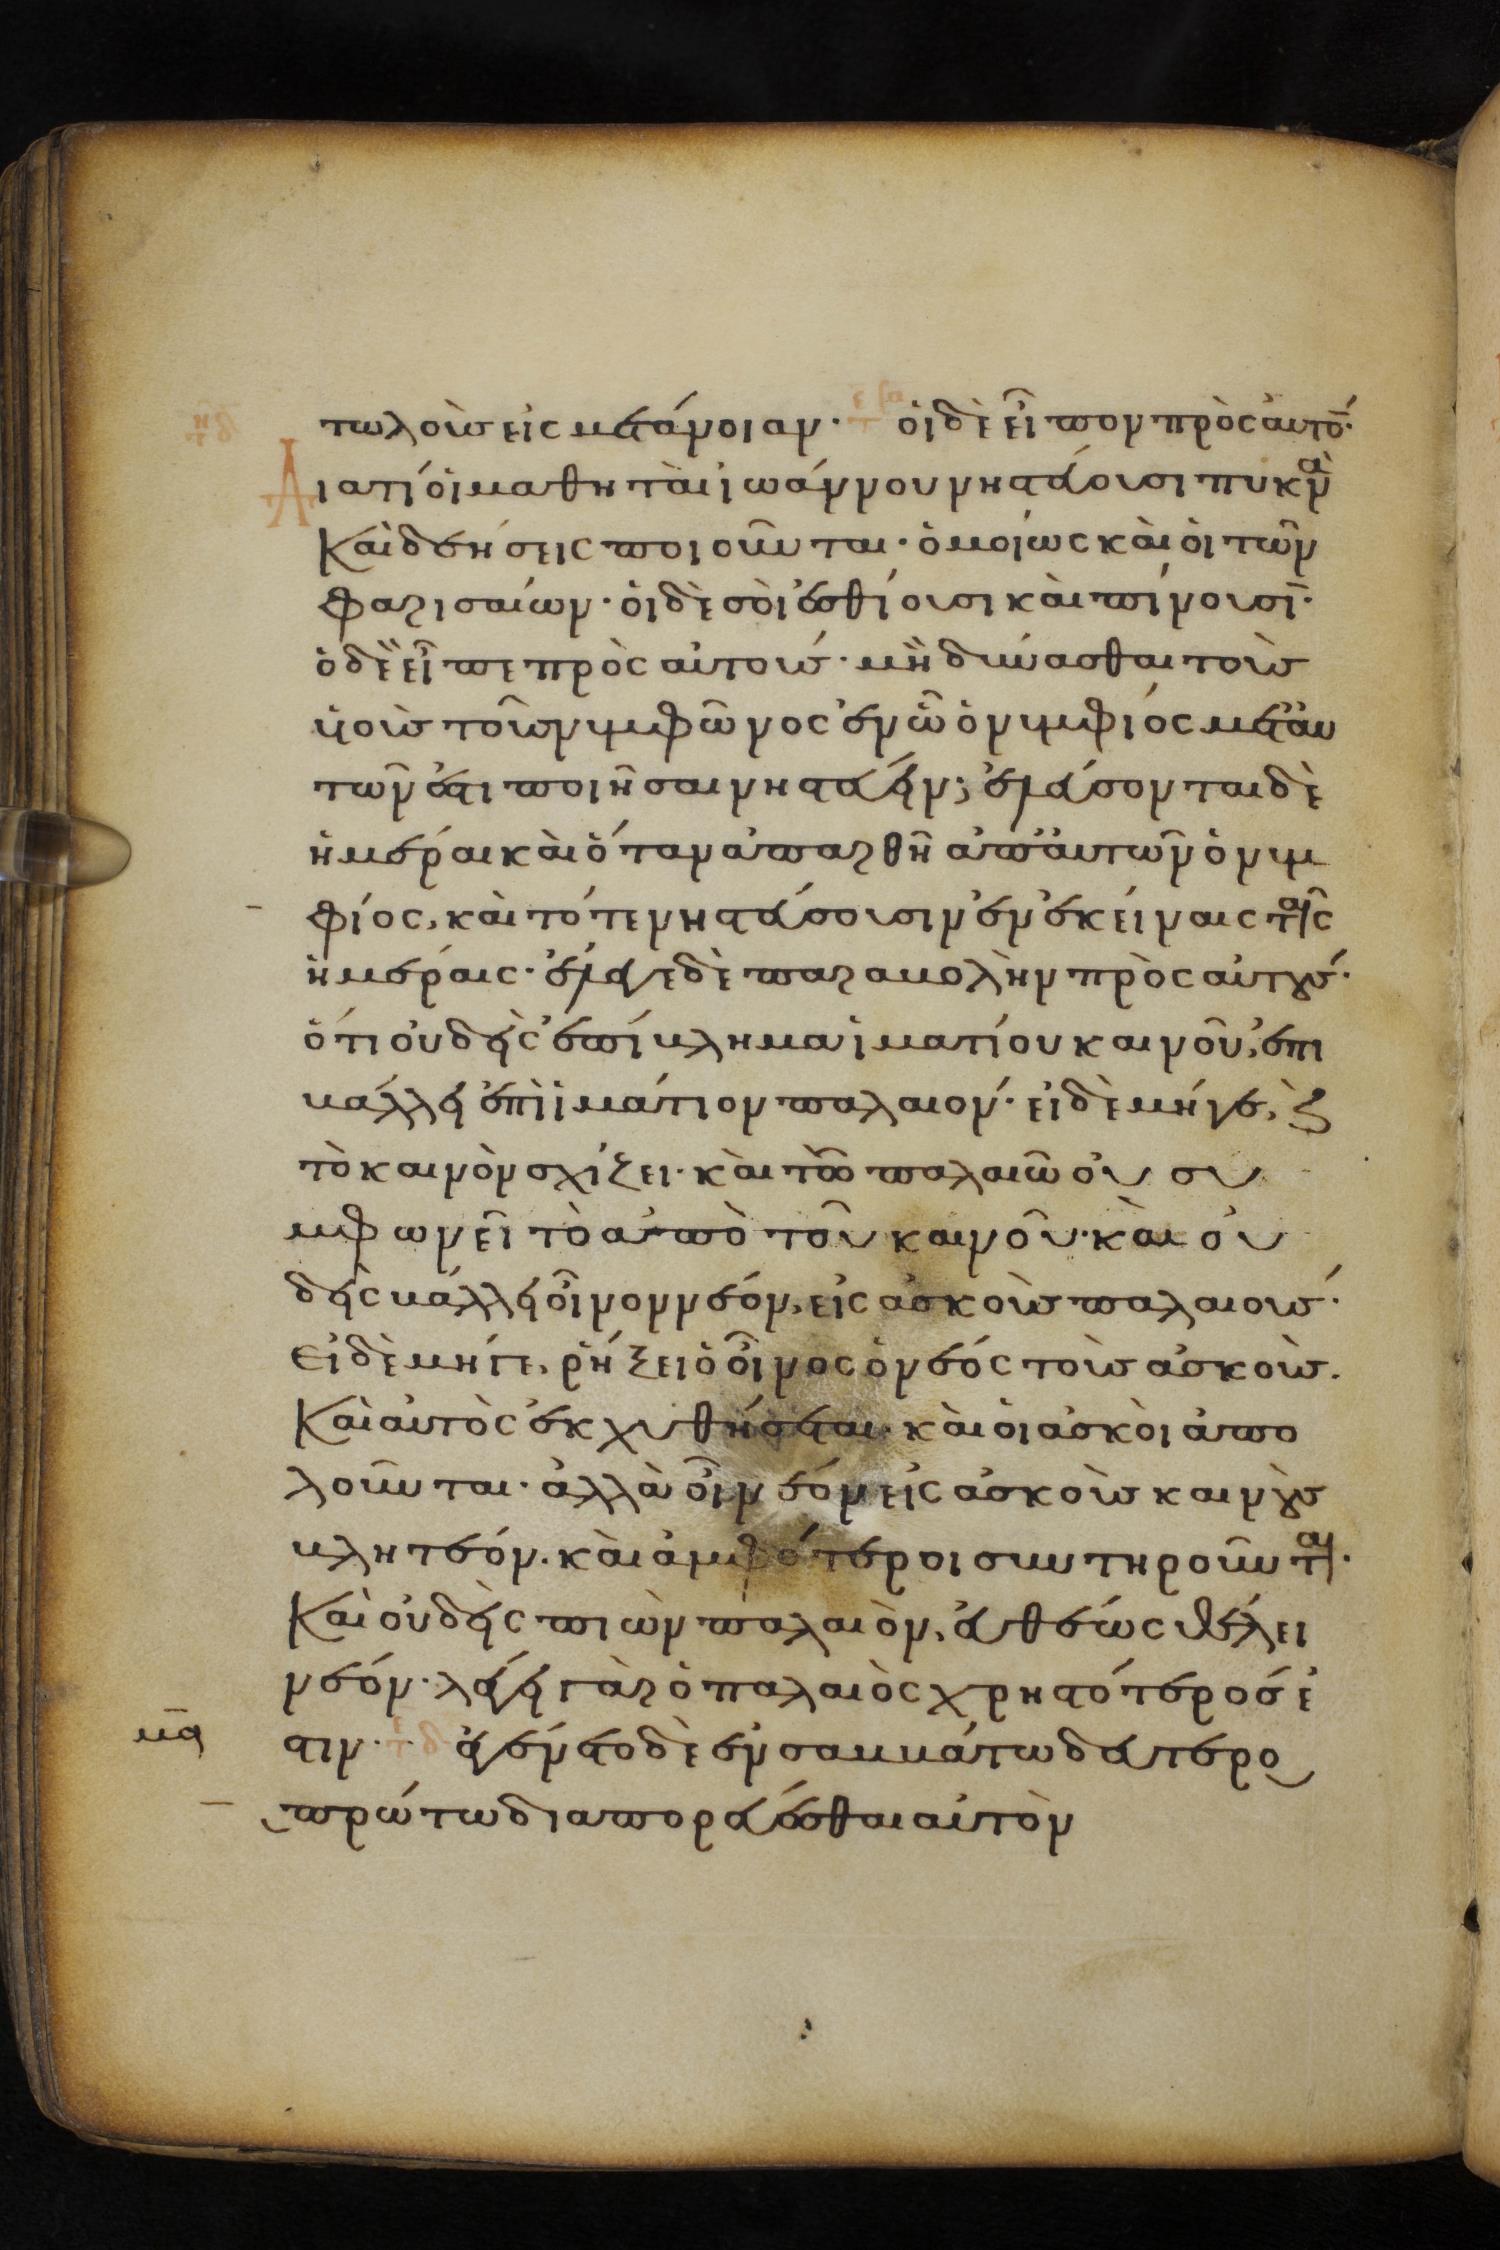 τωλοὺς εἰς μετάνοιαν· οἱ δὲ εἶπον πρὸς αὐτόν·
Διατί οἱ μαθηταὶ ἰωάννου νηστεύουσι πυκνὰ
Καὶ δεήσεις ποιοῦνται· ὁμοίως καὶ οἱ τῶν
φαρισαίων· οἱ δὲ σοὶ ἐσθίουσι καὶ πίνουσϊ·
ὁ δὲ εἶπε πρὸς αὐτούς· μὴ δύνασθαι τοὺς
ὑιοὺς τοῦ νυμφῶνος ἐν ᾧ ὁ νυμφίος μετ' αυ
τῶν ἐστι ποιῆσαι νηστεύειν; ἐλεύσονται δὲ
ἡμέραι καὶ ὅταν ἀπαρθῆ ἀπ' αυτῶν ὁ νυμ
φίος, καὶ τότε νηστεύσουσιν ἐν ἐκείναις ταῖς
ἡμέραις· ἔλεγε δὲ παραβολὴν πρὸς αὐτούς·
ὅτι οὐδεὶς ἐπίβλημα ἱματίου καινοῦ, ἐπι
βάλλει ἐπὶ ἱμάτιον παλαιον· εἰ δὲ μήγε, ὶ
τὸ καινὸν σχίζει· καὶ τῶ παλαιῶ οὐ συ
μφωνεῖ τὸ ἀπὸ τοῦ καινοῦ· καὶ οὐ
δεὶς βάλλει οἶνον νέον, εἰς ἀσκοὺς παλαιούς·
Εἰ δὲ μήγε, ῥήξει ὁ οἶνος ὁ νέος τοὺς ἀσκοὺς.
Καὶ αὐτὸς ἐκχυθήσεται· καὶ οἱ ἀσκοὶ ἀπο
λοῦνται· ἀλλὰ οἶν νέον εἰς ἀσκοὺς καινοὺς
βλητέον· καὶ ἀμφότεροι συντηροῦνται·
Καὶ οὐδεὶς πιὼν παλαιὸν, εὐθέως θέλει
νέον· λέγει γὰρ ὁ παλαιὸς χρηστότερος ἐ
στιν· ἐγένετο δὲ ἐν σαββάτω δευτερο
πρώτω διαπορεύεσθαι αὐτὸν